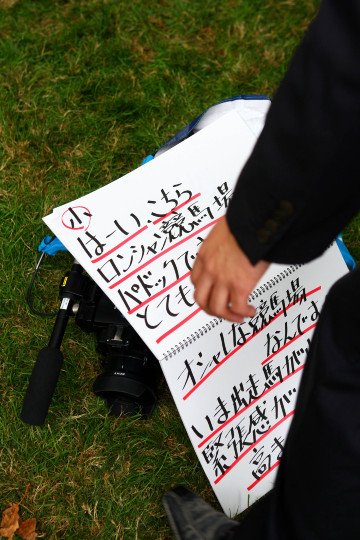 小
はーい、こちら
ロンシャン競馬場
パドックで
とても
オシャレな競馬場
なんです
いま出走馬が
緊張感が
高ま